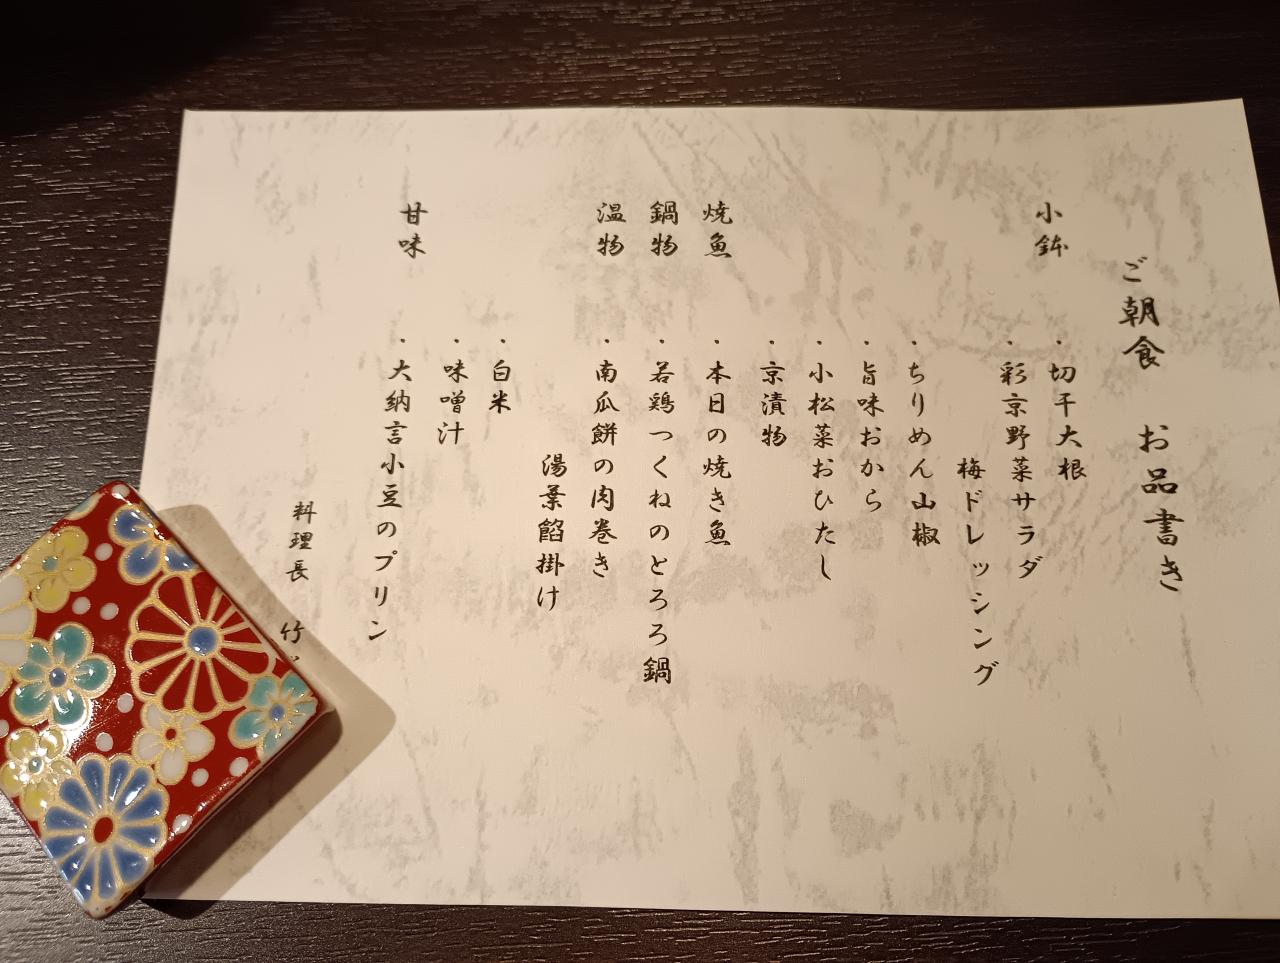 ご朝食 お品書き
小鉢 ・切干大根
・彩京野菜サラダ
梅ドレッシング
・ちりめん山椒
・旨味おから
・小松菜おひたし
・京漬物
焼魚 ・本日の焼き魚
鍋物 ・若鶏つくねのとろろ鍋
温物 ・南瓜餅の肉巻き
湯葉餡掛け
・白米
・味噌汁
甘味 ・大納言小豆のプリン
料理長 竹